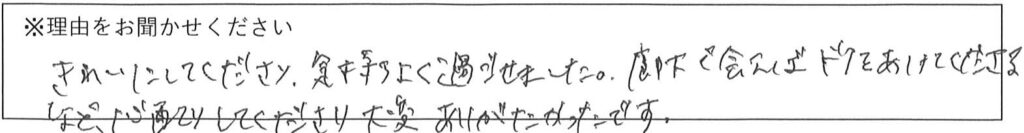 ※理由をお聞かせください
きれいにしてくださり、気持ちよく過ごせました。廊下で会えばドアをあけてくださる
など、心通りしてくださり大変ありがたかったです。